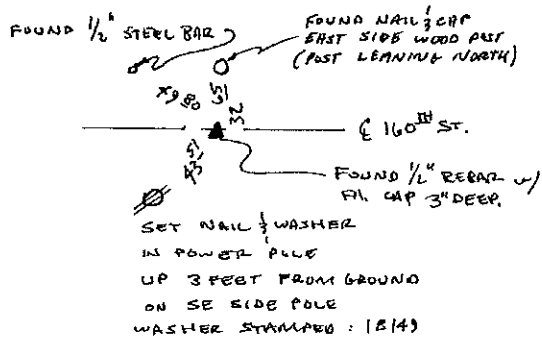 FOUND 1/2" STEEL BAR
FOUND NAIL & CAP
EAST SIDE WOOD POST
(POST LEANING NORTH)
℄ 160TH ST.
FOUND 1/2" REBAR w/
Al. CAP 3" DEEP.
SET NAIL & WASHER
IN POWER POLE
UP 3 FEET FROM GROUND
ON SE SIDE POLE
WASHER STAMPED : 18149